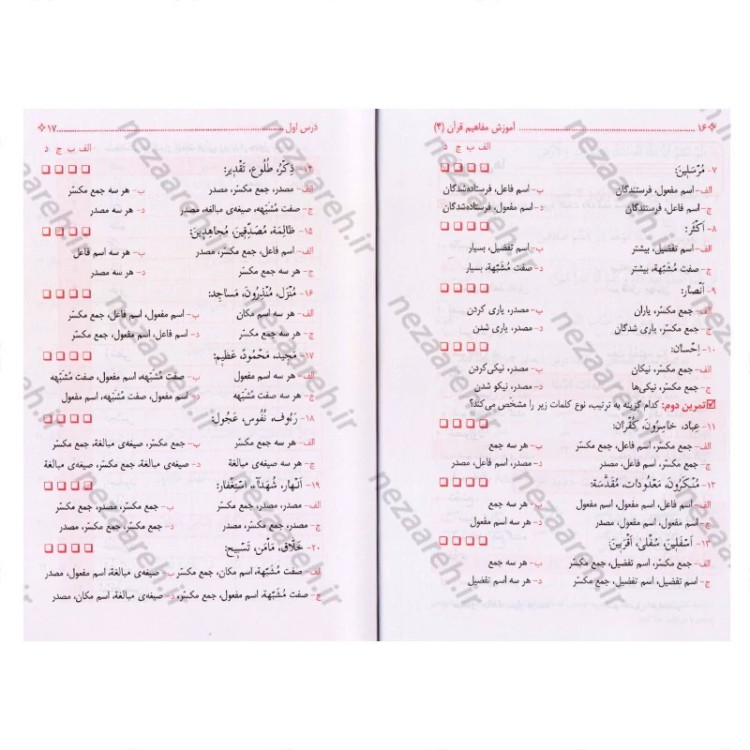 ۱۶ آموزش مفاهیم قرآن (۳)
الف ب ج د
۷- مُرْسَلین:
الف- اسم مفعول، فرستندگان ب- اسم فاعل، فرستاده‌شدگان
ج- اسم فاعل، فرستندگان د- اسم مفعول، فرستاده‌شدگان
۸- اَکْثَر:
الف- اسم تفضیل، بیشتر ب- اسم تفضیل، بسیار
ج- صفت مُشَبَّهة، بیشتر د- صفت مُشَبَّهة، بسیار
۹- اَنْصار:
الف- جمع مکسّر، یاران ب- مصدر، یاری کردن
ج- جمع مکسّر، یاری شدگان د- مصدر، یاری شدن
۱۰- اِحْسان:
الف- جمع مکسّر، نیکان ب- مصدر، نیکی‌کردن
ج- جمع مکسّر، نیکی‌ها د- مصدر، نیکو شدن
تمرین دوم: کدام گزینه به ترتیب، نوع کلمات زیر را مشخّص می‌کند؟
۱۱- عِباد، خاسِرُونَ، کُفْران:
الف- جمع مکسّر، اسم فاعل، جمع مکسّر ب- هر سه جمع
ج- جمع مکسّر، اسم فاعل، مصدر د- مصدر، اسم فاعل، مصدر
۱۲- مُنْکَرُونَ، مَعْدُودات، مُقَدَّسَة:
الف- اسم فاعل، اسم مفعول، اسم مفعول ب- هر سه جمع
ج- اسم مفعول، اسم مفعول، مصدر د- هر سه اسم مفعول
۱۳- اَسْفَلینَ، سُفْلیٰ، اَقْرَبینَ:
الف- جمع مکسّر، اسم تفضیل، جمع مکسّر ب- هر سه جمع
ج- اسم تفضیل، اسم تفضیل، جمع مکسّر د- هر سه اسم تفضیل
درس اول ۱۷
الف ب ج د
۱۴- ذِکْر، طُلُوع، تَقْدیر:
الف- مصدر، جمع مکسّر، مصدر ب- هر سه جمع مکسّر
ج- صفت مُشَبَّهه، صیغه‌ی مبالغه، مصدر د- هر سه مصدر
۱۵- ظالِمَة، مُصَدِّقینَ، مُجاهِدینَ:
الف- اسم فاعل، جمع مکسّر، مصدر ب- هر سه اسم فاعل
ج- هر سه جمع مکسّر د- هر سه مصدر
۱۶- مُنْزَل، مُنْذِرُونَ، مَساجِد:
الف- هر سه اسم مکان ب- اسم مفعول، اسم فاعل، جمع مکسّر
ج- هر سه جمع مکسّر د- اسم فاعل، اسم مفعول، جمع مکسّر
۱۷- مَجید، مَحْمُود، عَظیم:
الف- هر سه اسم مفعول ب- صفت مُشَبَّهه، اسم مفعول، صفت مُشَبَّهه
ج- هر سه صفت مُشَبَّهه د- اسم مفعول، صفت مُشَبَّهه، اسم مفعول
۱۸- رَئُوف، نُفُوس، عَجُول:
الف- هر سه جمع مکسّر ب- صیغه‌ی مبالغة، جمع مکسّر، صیغه‌ی مبالغة
ج- هر سه صیغه‌ی مبالغة د- صیغه‌ی مبالغة، جمع مکسّر، جمع مکسّر
۱۹- اَنْهار، شُهَداء، اِسْتِغْفار:
الف- مصدر، مصدر، جمع مکسّر ب- جمع مکسّر، مصدر، جمع مکسّر
ج- مصدر، جمع مکسّر، مصدر د- جمع مکسّر، جمع مکسّر، مصدر
۲۰- خَلّاق، مَأْمَن، تَسْبیح:
الف- صفت مُشَبَّهة، اسم مکان، جمع مکسّر ب- صیغه‌ی مبالغة، اسم مفعول، مصدر
ج- صفت مُشَبَّهة، اسم مفعول، جمع مکسّر د- صیغه‌ی مبالغة، اسم مکان، مصدر
nezaareh.ir